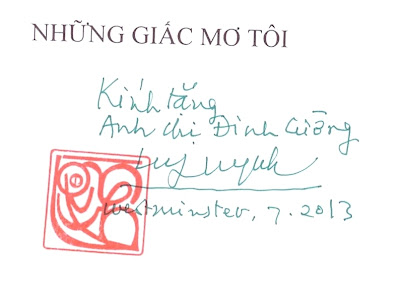 NHỮNG GIẤC MƠ TÔI
Kính tặng
Anh chị Đinh Cường
Westminster, 7.2013